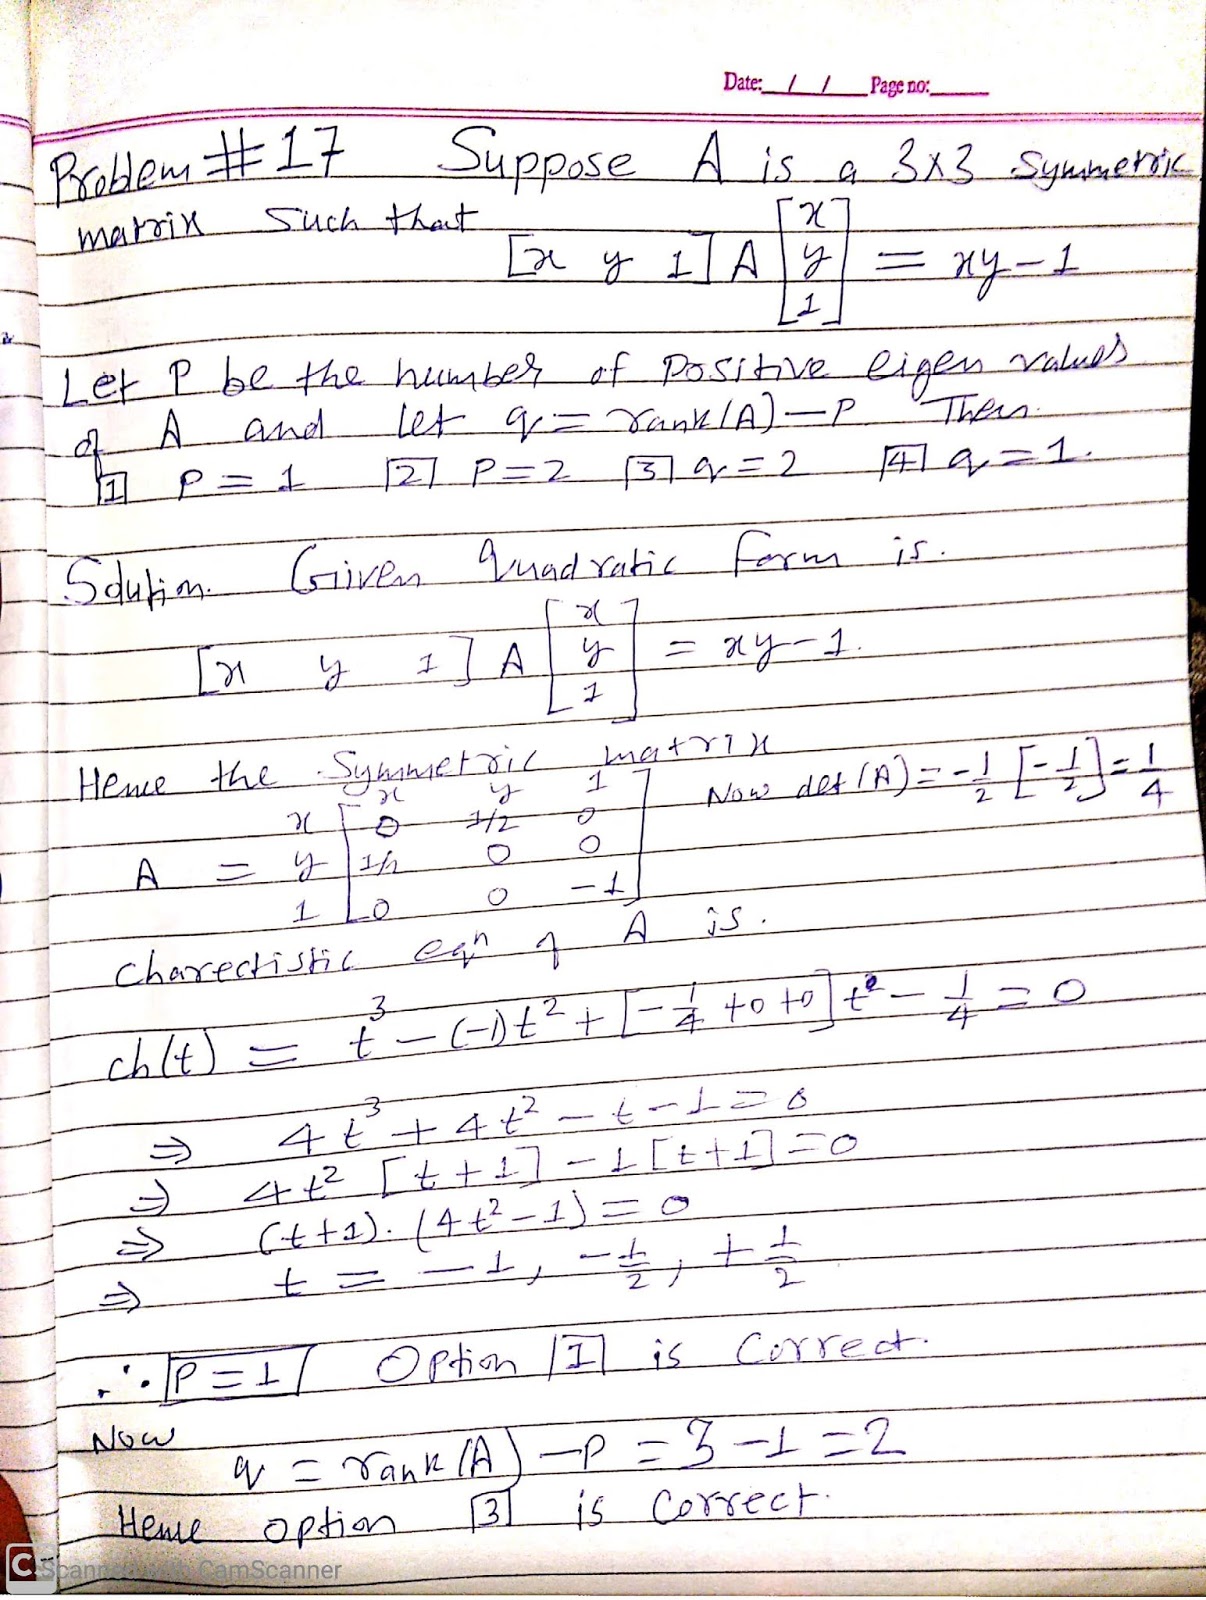 Date: / / Page no:
Problem #17 Suppose A is a 3x3 Symmetric
matrix such that
[x y 1] A [x y 1] = xy-1
Let P be the number of Positive eigen values
of A and let q = rank(A)-P Then
[1] P=1 [2] P=2 [3] q=2 [4] q=1.
Solution. Given Quadratic Form is.
[x y 1] A [x y 1] = xy-1.
Hence the Symmetric matrix
Now det(A) = -1/2 [-1/2] = 1/4
x y 1
x 0 1/2 0
A = y 1/2 0 0
1 0 0 -1
Charectistic eqn of A is.
ch(t) = t³-(-1)t²+[-1/4+0+0]t-1/4=0
⇒ 4t³+4t²-t-1=0
⇒ 4t²[t+1]-1[t+1]=0
⇒ (t+1).(4t²-1)=0
⇒ t = -1, -1/2, +1/2
∴ P=1 Option [1] is Correct.
Now
q = rank(A)-P = 3-1=2
Hence option [3] is Correct.
CamScanner